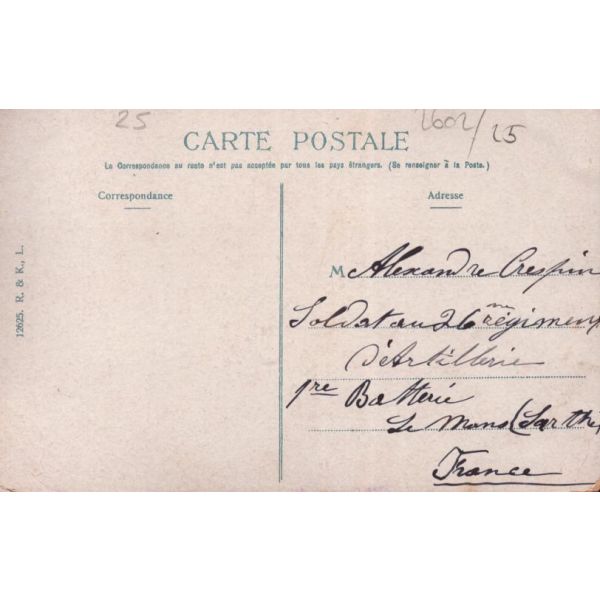 25
2602/25
CARTE POSTALE
La Correspondance au recto n'est pas acceptée par tous les pays étrangers. (Se renseigner à la Poste.)
Correspondance
Adresse
12625. R. & K., L.
M Alexandre Crespin
Soldat au 26me régiment
d'Artillerie
1re Batterie
Le Mans (Sarthe)
France